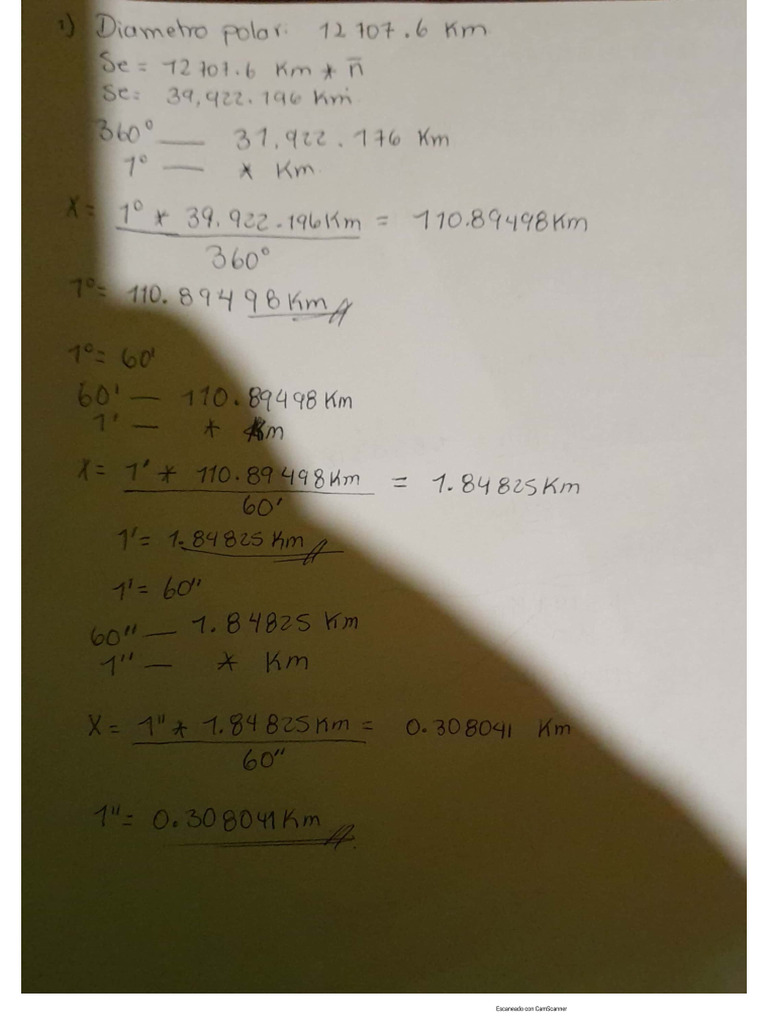 1) Diametro polar: 12707.6 Km
Se = 12707.6 Km * n̄
Se: 39,922.196 Km
360° — 31.922.176 Km
1° — * Km.
X = 1° * 39.922.196 Km = 110.89498 Km
360°
1° = 110.89498 Km
1° = 60'
60' — 110.89498 Km
1' — * Km
X = 1' * 110.89498 Km = 1.84825 Km
60'
1' = 1.84825 Km
1' = 60"
60" — 1.84825 Km
1" — * Km
X = 1" * 1.84825 Km = 0.308041 Km
60"
1" = 0.308041 Km
Escaneado con CamScanner